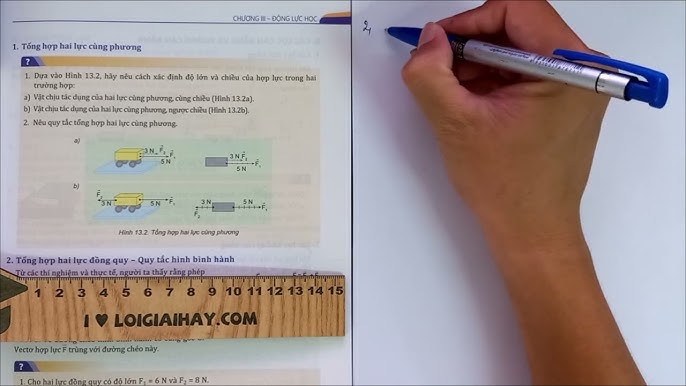 CHƯƠNG III – ĐỘNG LỰC HỌC
1. Tổng hợp hai lực cùng phương
?
1. Dựa vào Hình 13.2, hãy nêu cách xác định độ lớn và chiều của hợp lực trong hai
trường hợp:
a) Vật chịu tác dụng của hai lực cùng phương, cùng chiều (Hình 13.2a).
b) Vật chịu tác dụng của hai lực cùng phương, ngược chiều (Hình 13.2b).
2. Nêu quy tắc tổng hợp hai lực cùng phương.
a)
3 N F₂ F₁
5 N
3 N F₂
5 N F₁
b)
F₂
3 N 5 N F₁
3 N 5 N F₁
F₂
Hình 13.2. Tổng hợp hai lực cùng phương
2. Tổng hợp hai lực đồng quy – Quy tắc hình bình hành
Từ các thí nghiệm và thực tế, người ta thấy rằng phép
1 2 3 4 5 6 7 8 9 10 11 12 13 14 15
I ♥ LOIGIAIHAY.COM
Vectơ hợp lực F trùng với đường chéo này.
?
1. Cho hai lực đồng quy có độ lớn F₁ = 6 N và F₂ = 8 N.
2,